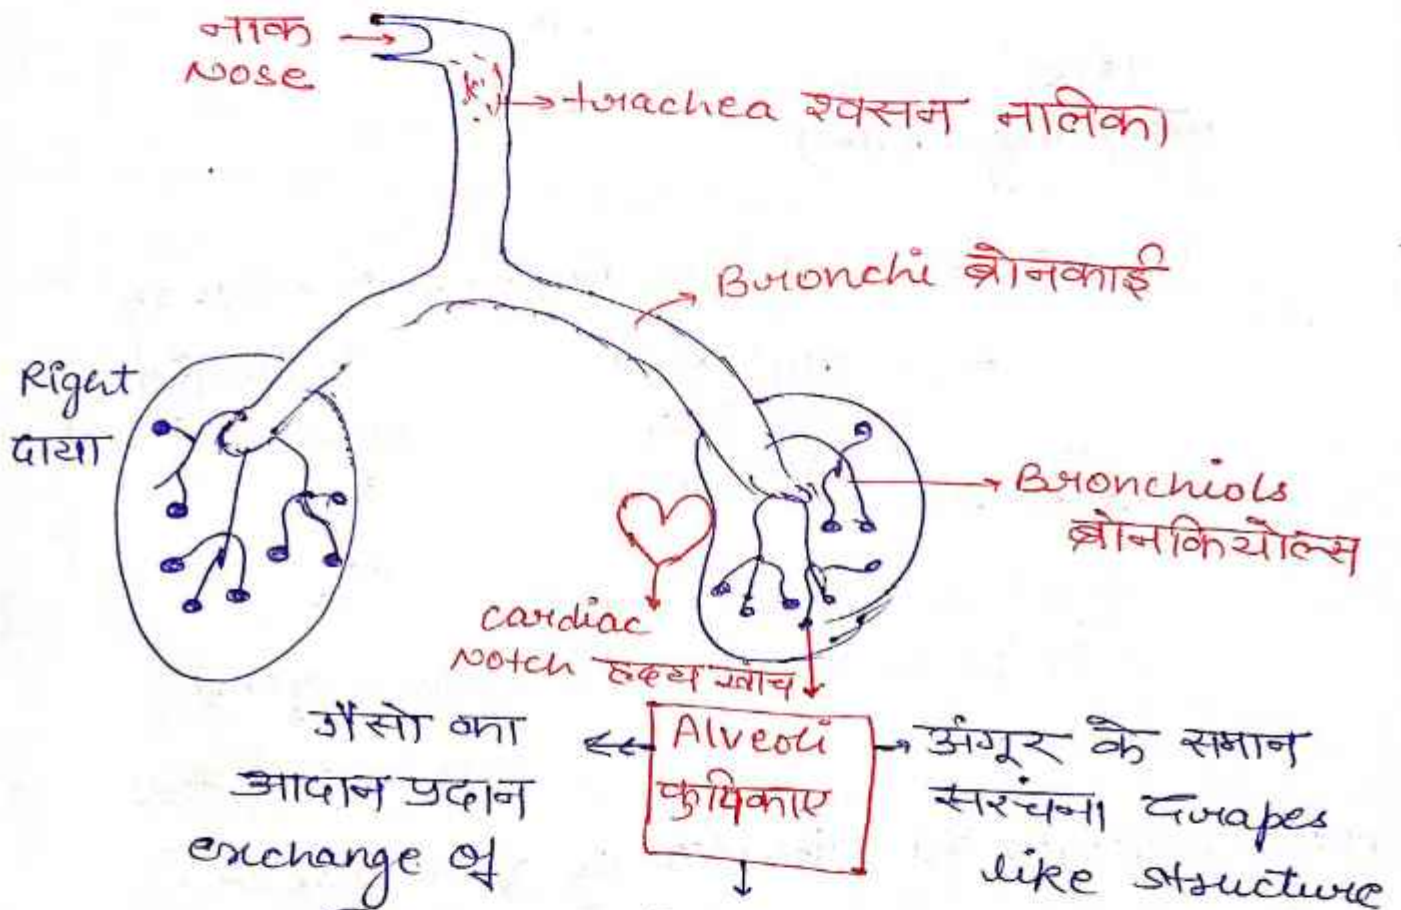 नाक
Nose
trachea श्वसन नालिका
Bronchi ब्रोनकाई
Right
दाया
Bronchiols
ब्रोनकियोल्स
cardiac
Notch हृदय खाच
गैसो का
आदान प्रदान
exchange of
Alveoli
कुपिकाए
अंगूर के समान
सरंचना Grapes
like structure